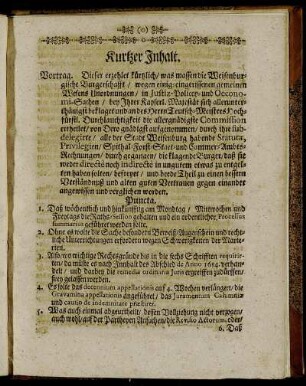 (o)
Kurtzer Inhalt.
Vortrag. Dieser erzehlet kürtzlich/ was massen die Weissenbur-
gische Burgerschafft / wegen einig-eingerissenen gemeinen
Wesens Unordnungen / in Justiz-Policey- und Oecono-
mi-Sachen / bey Ihrer Kayserl. Majestät sich allerunter-
thänigst beklaget und an des Herrn Teutsch-Meisters Hoch-
fürstl. Durchläuchtigkeit die allergnädigste Commission
erhellet / von Dero gnädigst aufgenommen / durch ihre sub-
delegirte / alle der Stadt Weissenburg habende Statuta,
Privilegien / Spithal-Forst-Steur- und Cammer-Ambts-
Rechnungen / durchgegangen / die klagende Burger / daß sie
weder directe noch indirecte in ungutem etwas zu entgel-
ten haben solten/ befreyet / und beede Theil zu einen bessern
Verständnuß und alten guten Vertrauen gegen einander
angewiesen und verglichen worden.
Puncta.
1. Daß wöchentlich und zukünfftig am Montag / Mittwochen und
Freytags die Raths-Session gehalten und ein ordentlicher Processus
summarius geführet werden solle.
2. Ohne es wolte die Sache besondern Beweiß/ Augenschein und recht-
liche Unterrichtungen erfordern wegen Schwerigkeiten der Mate-
rien.
3. Also wo wichtige Rechtsgründe bis in die sechs Schrifften requiri-
ten / da müste es nach Innhalt des Abschieds de Anno 1654. verhan-
delt / und darbey die remedia ordinaria Juris ergreiffen zubürffen/
frey gelassen werden.
4. Es solte das decennium appellationis auf 4. Wochen verlängen/ die
Gravamina appellationis angeführet / das Juramentum Calumniæ
und cautio de indemnitate præstiret.
5. Was auch einmal abgeurtheilt / dessen Vollziehung nicht verzogen/
auch wohl auf der Partheyen Ansuchen / die Revisio Actorum, oder/
6. Daß